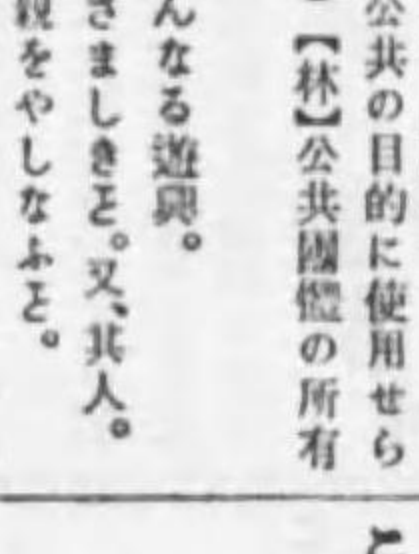 公共の目的に使用せら
【林】公共團體の所有
んなる遊興。
さましきこと。又、其人。
親をやしなふこと。